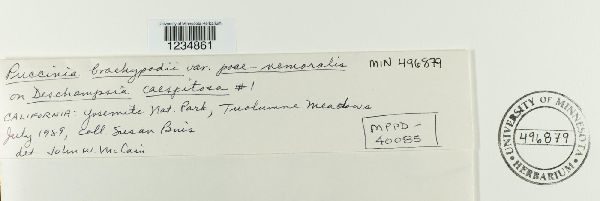 University of Minnesota Herbarium
1234861
Puccinia brachypodii var. poae-nemoralis
MIN 496879
on Deschampsia caespitosa #1
CALIFORNIA: Yosemite Nat. Park, Tuolumne Meadows
July 1989, coll Susan Buis
det John W. McCain
MPPD-
40085
UNIVERSITY OF MINNESOTA
496879
HERBARIUM